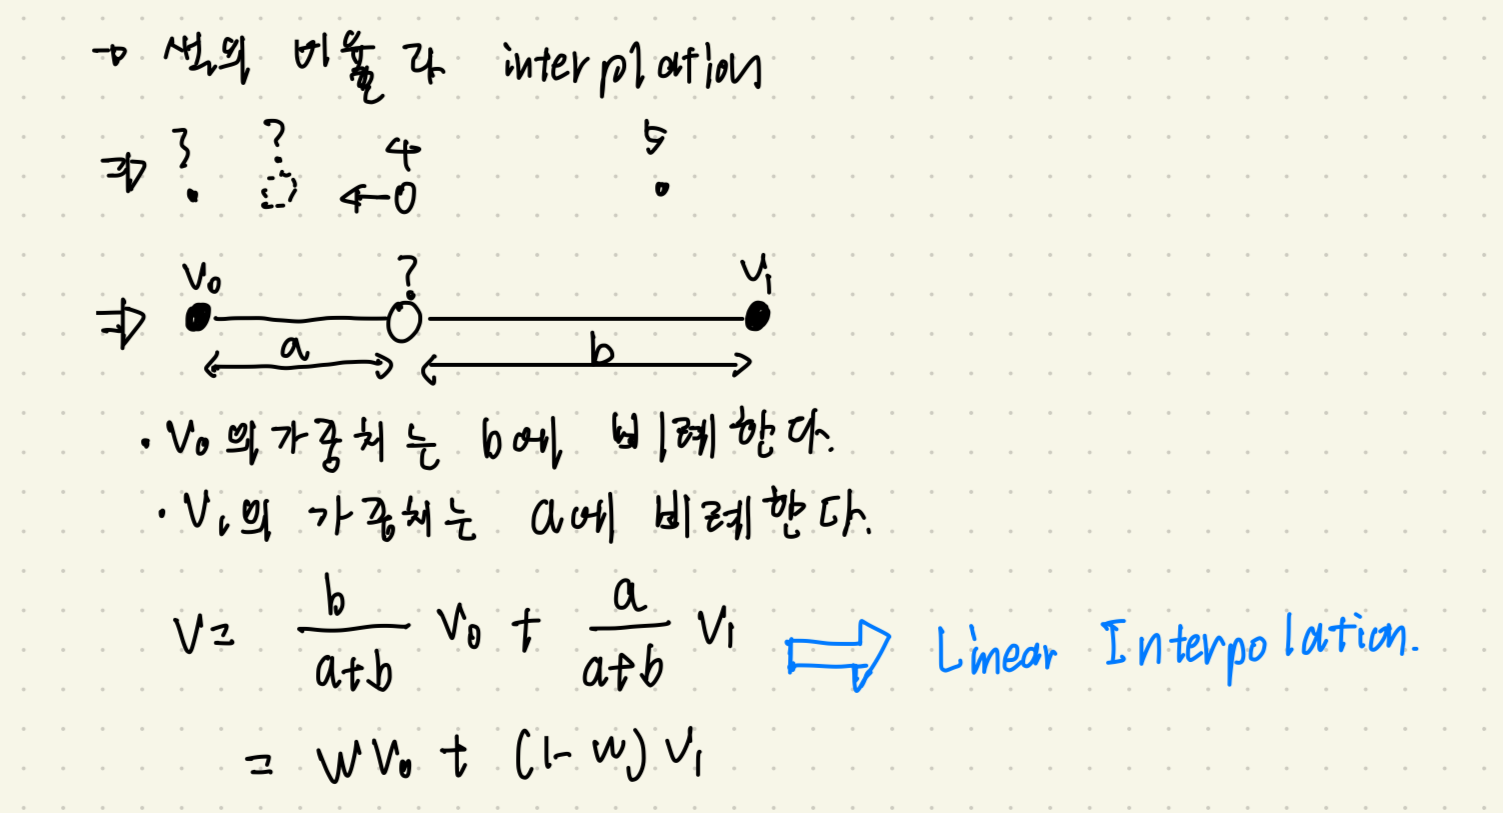 → 색의 비율과 interplation
⇒ 3 ? 4 5
⇒ V₀ ? V₁
a b
· V₀의 가중치는 b에 비례한다.
· V₁의 가중치는 a에 비례한다.
V = b/(a+b) V₀ + a/(a+b) V₁ ⇒ Linear Interpolation.
= w V₀ + (1-w) V₁